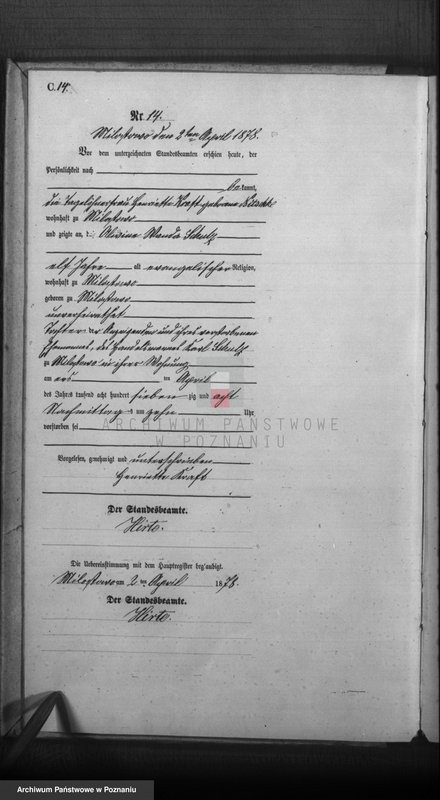 C. 14.
Nr 14.
Milostowo den 2ten April 1878.
Vor dem unterzeichneten Standesbeamten erschien heute, der
Persönlichkeit nach
bekannt,
die Tagelöhnerfrau Henriette Kraft geborene
wohnhaft zu Milostowo
und zeigte an, d Olivine Wanda Schulz
elf Jahre alt evangelischer Religion,
wohnhaft zu Milostowo
geboren zu Milostowo
unverheirathet
Tochter der Anzeigenden und ihres verstorbenen
Ehemannes, des Handelsmannes Karl Schulz
zu Milostowo in ihrer Wohnung
am ers ten April
des Jahres tausend acht hundert sieben zig und acht
Nachmittags um zehn Uhr
verstorben sei
Vorgelesen, genehmigt und unterschrieben
Henriette Kraft
Der Standesbeamte.
Hirte.
Die Uebereinstimmung mit dem Hauptregister beglaubigt.
Milostowo am 2 ten April 1878.
Der Standesbeamte.
Hirte.
ARCHIWUM PAŃSTWOWE
W POZNANIU
Archiwum Państwowe w Poznaniu